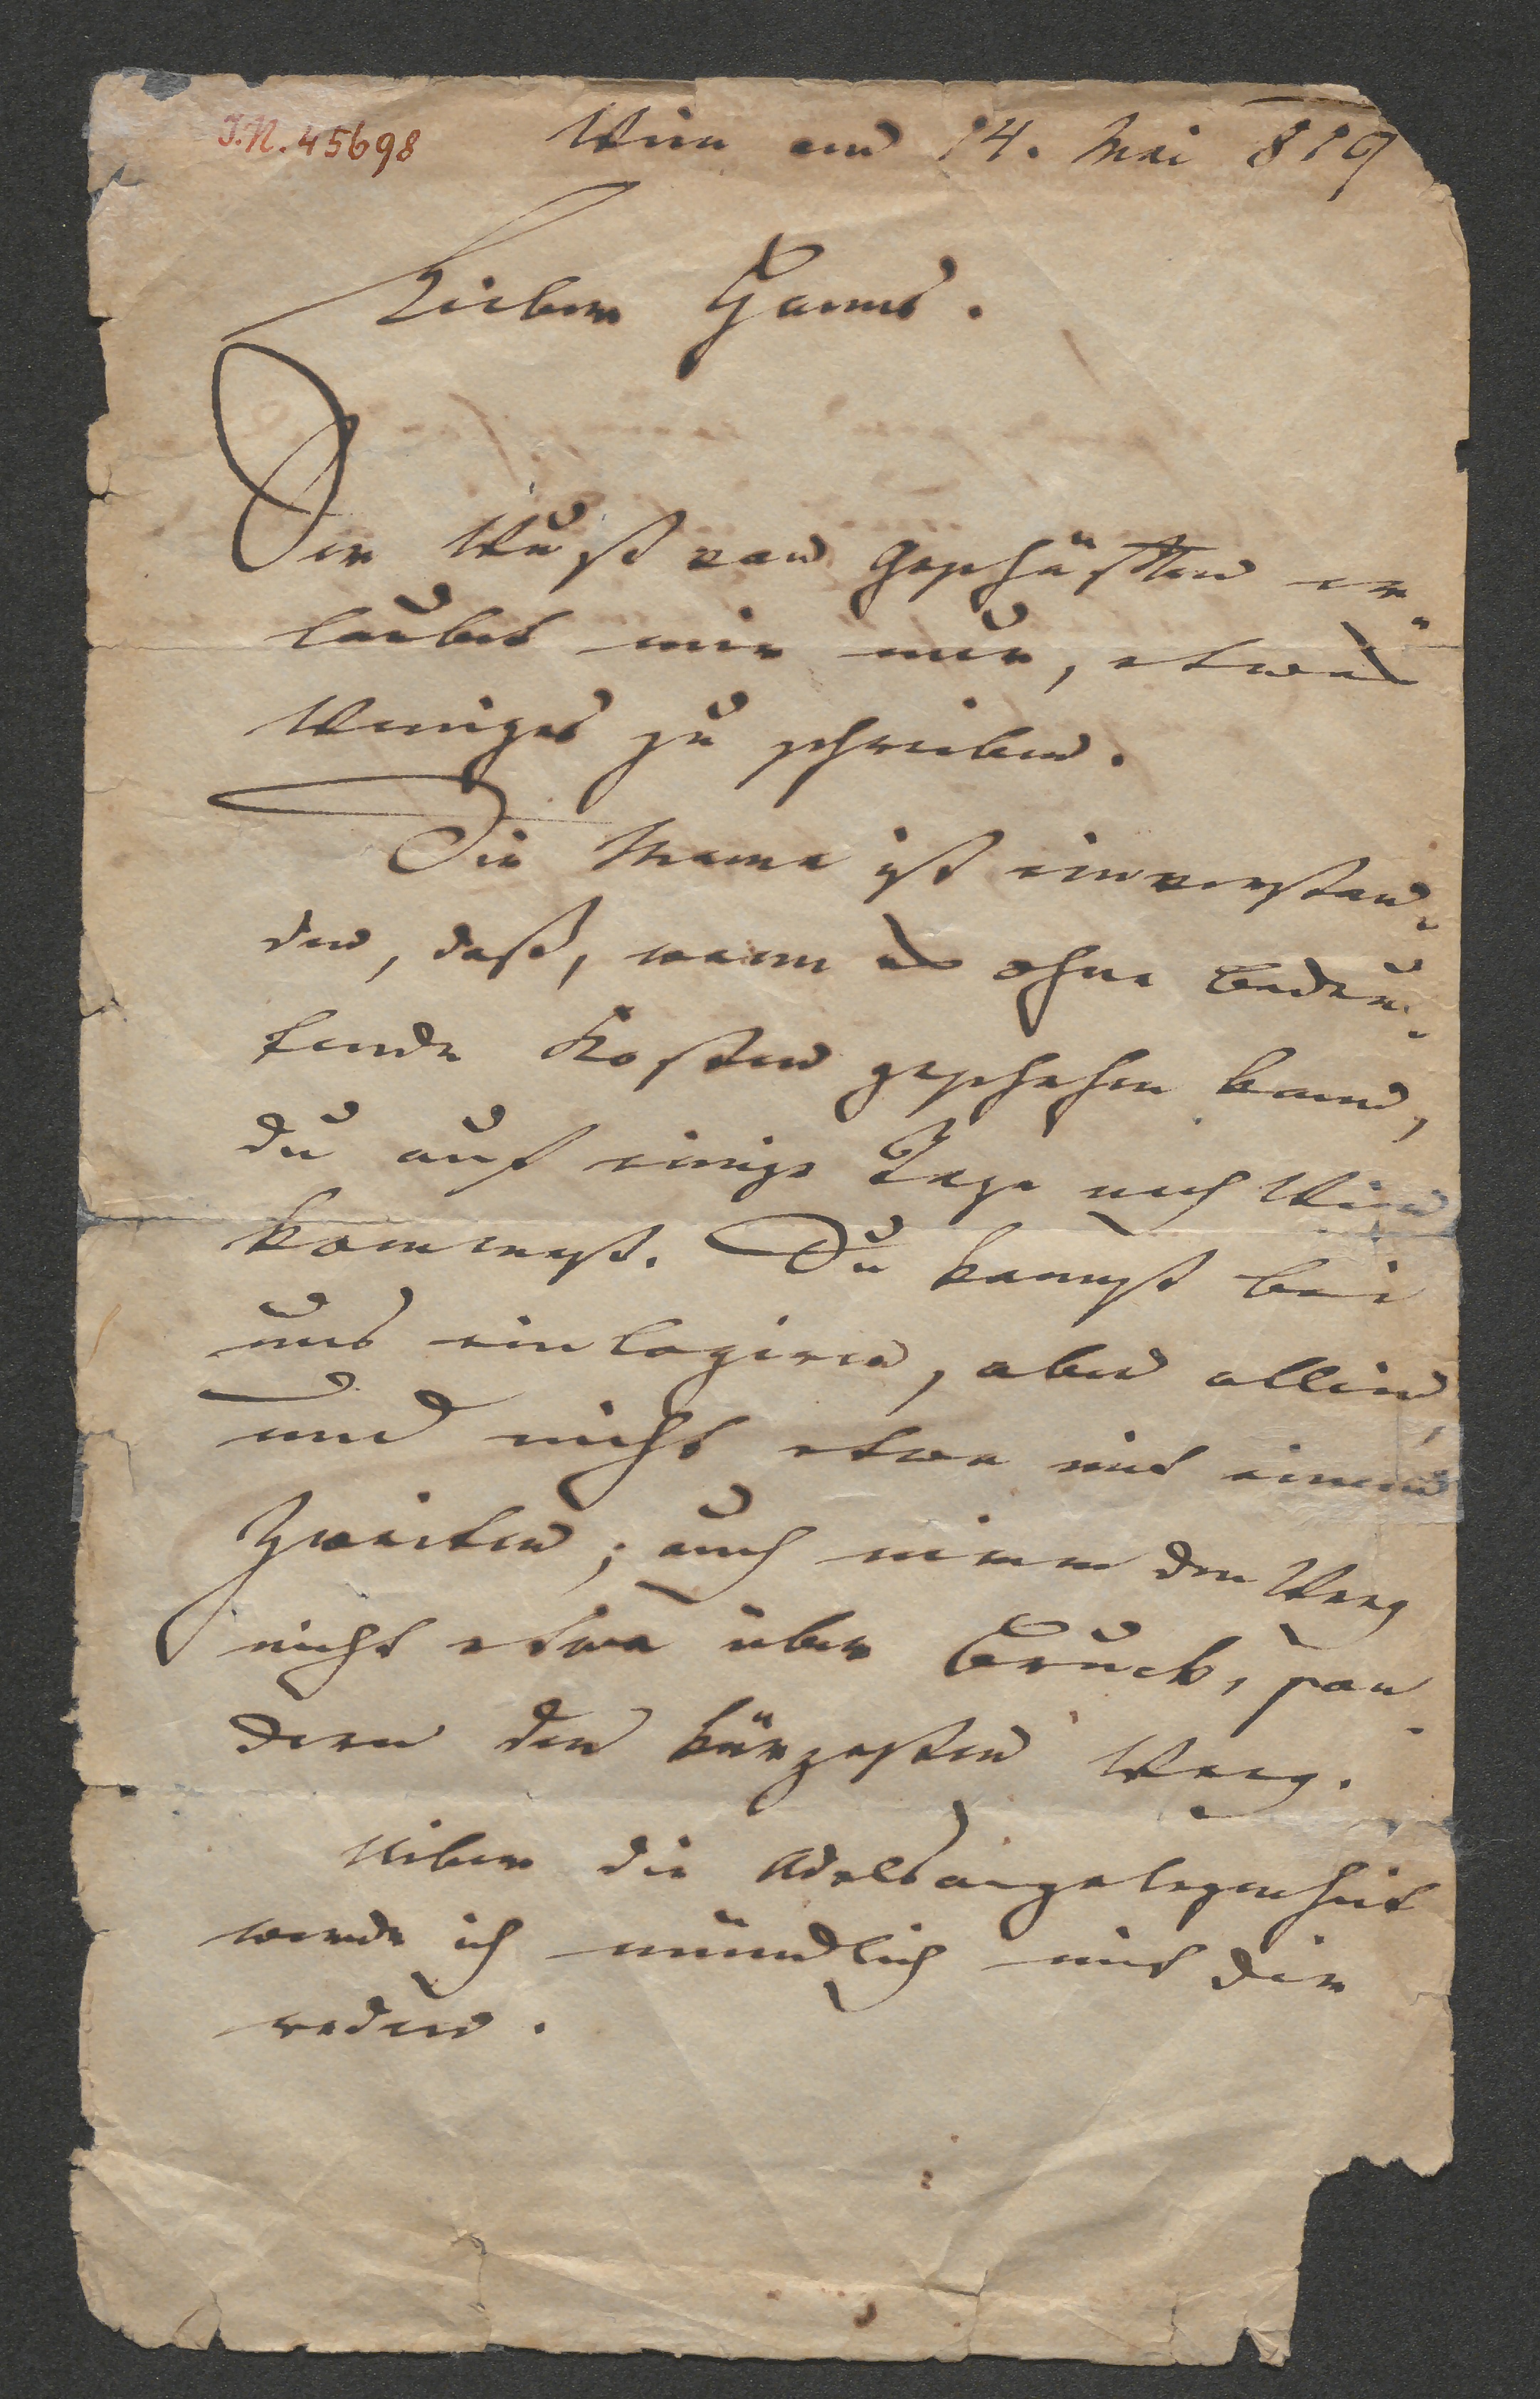 J.N. 45698
Wien am 14. Mai 819
Lieber Hanns.
Der Wust von Geschäften er-
laubt mir nur, etwas
Weniges zu schreiben.
Die Mama ist einverstan-
den, daß, wenn es ohne bedeu-
tende Kosten geschehen kann,
du auf einige Tage nach Wien
kommest. Du kannst bei
uns einlogiren, aber allein,
und nicht etwa mit einem
Zweiten; auch nimm den Weeg
nicht etwa über Bruck, son-
dern den kürzesten Weeg.
Ueber die Adelsangelegenheit
werde ich mündlich mit dir
reden.